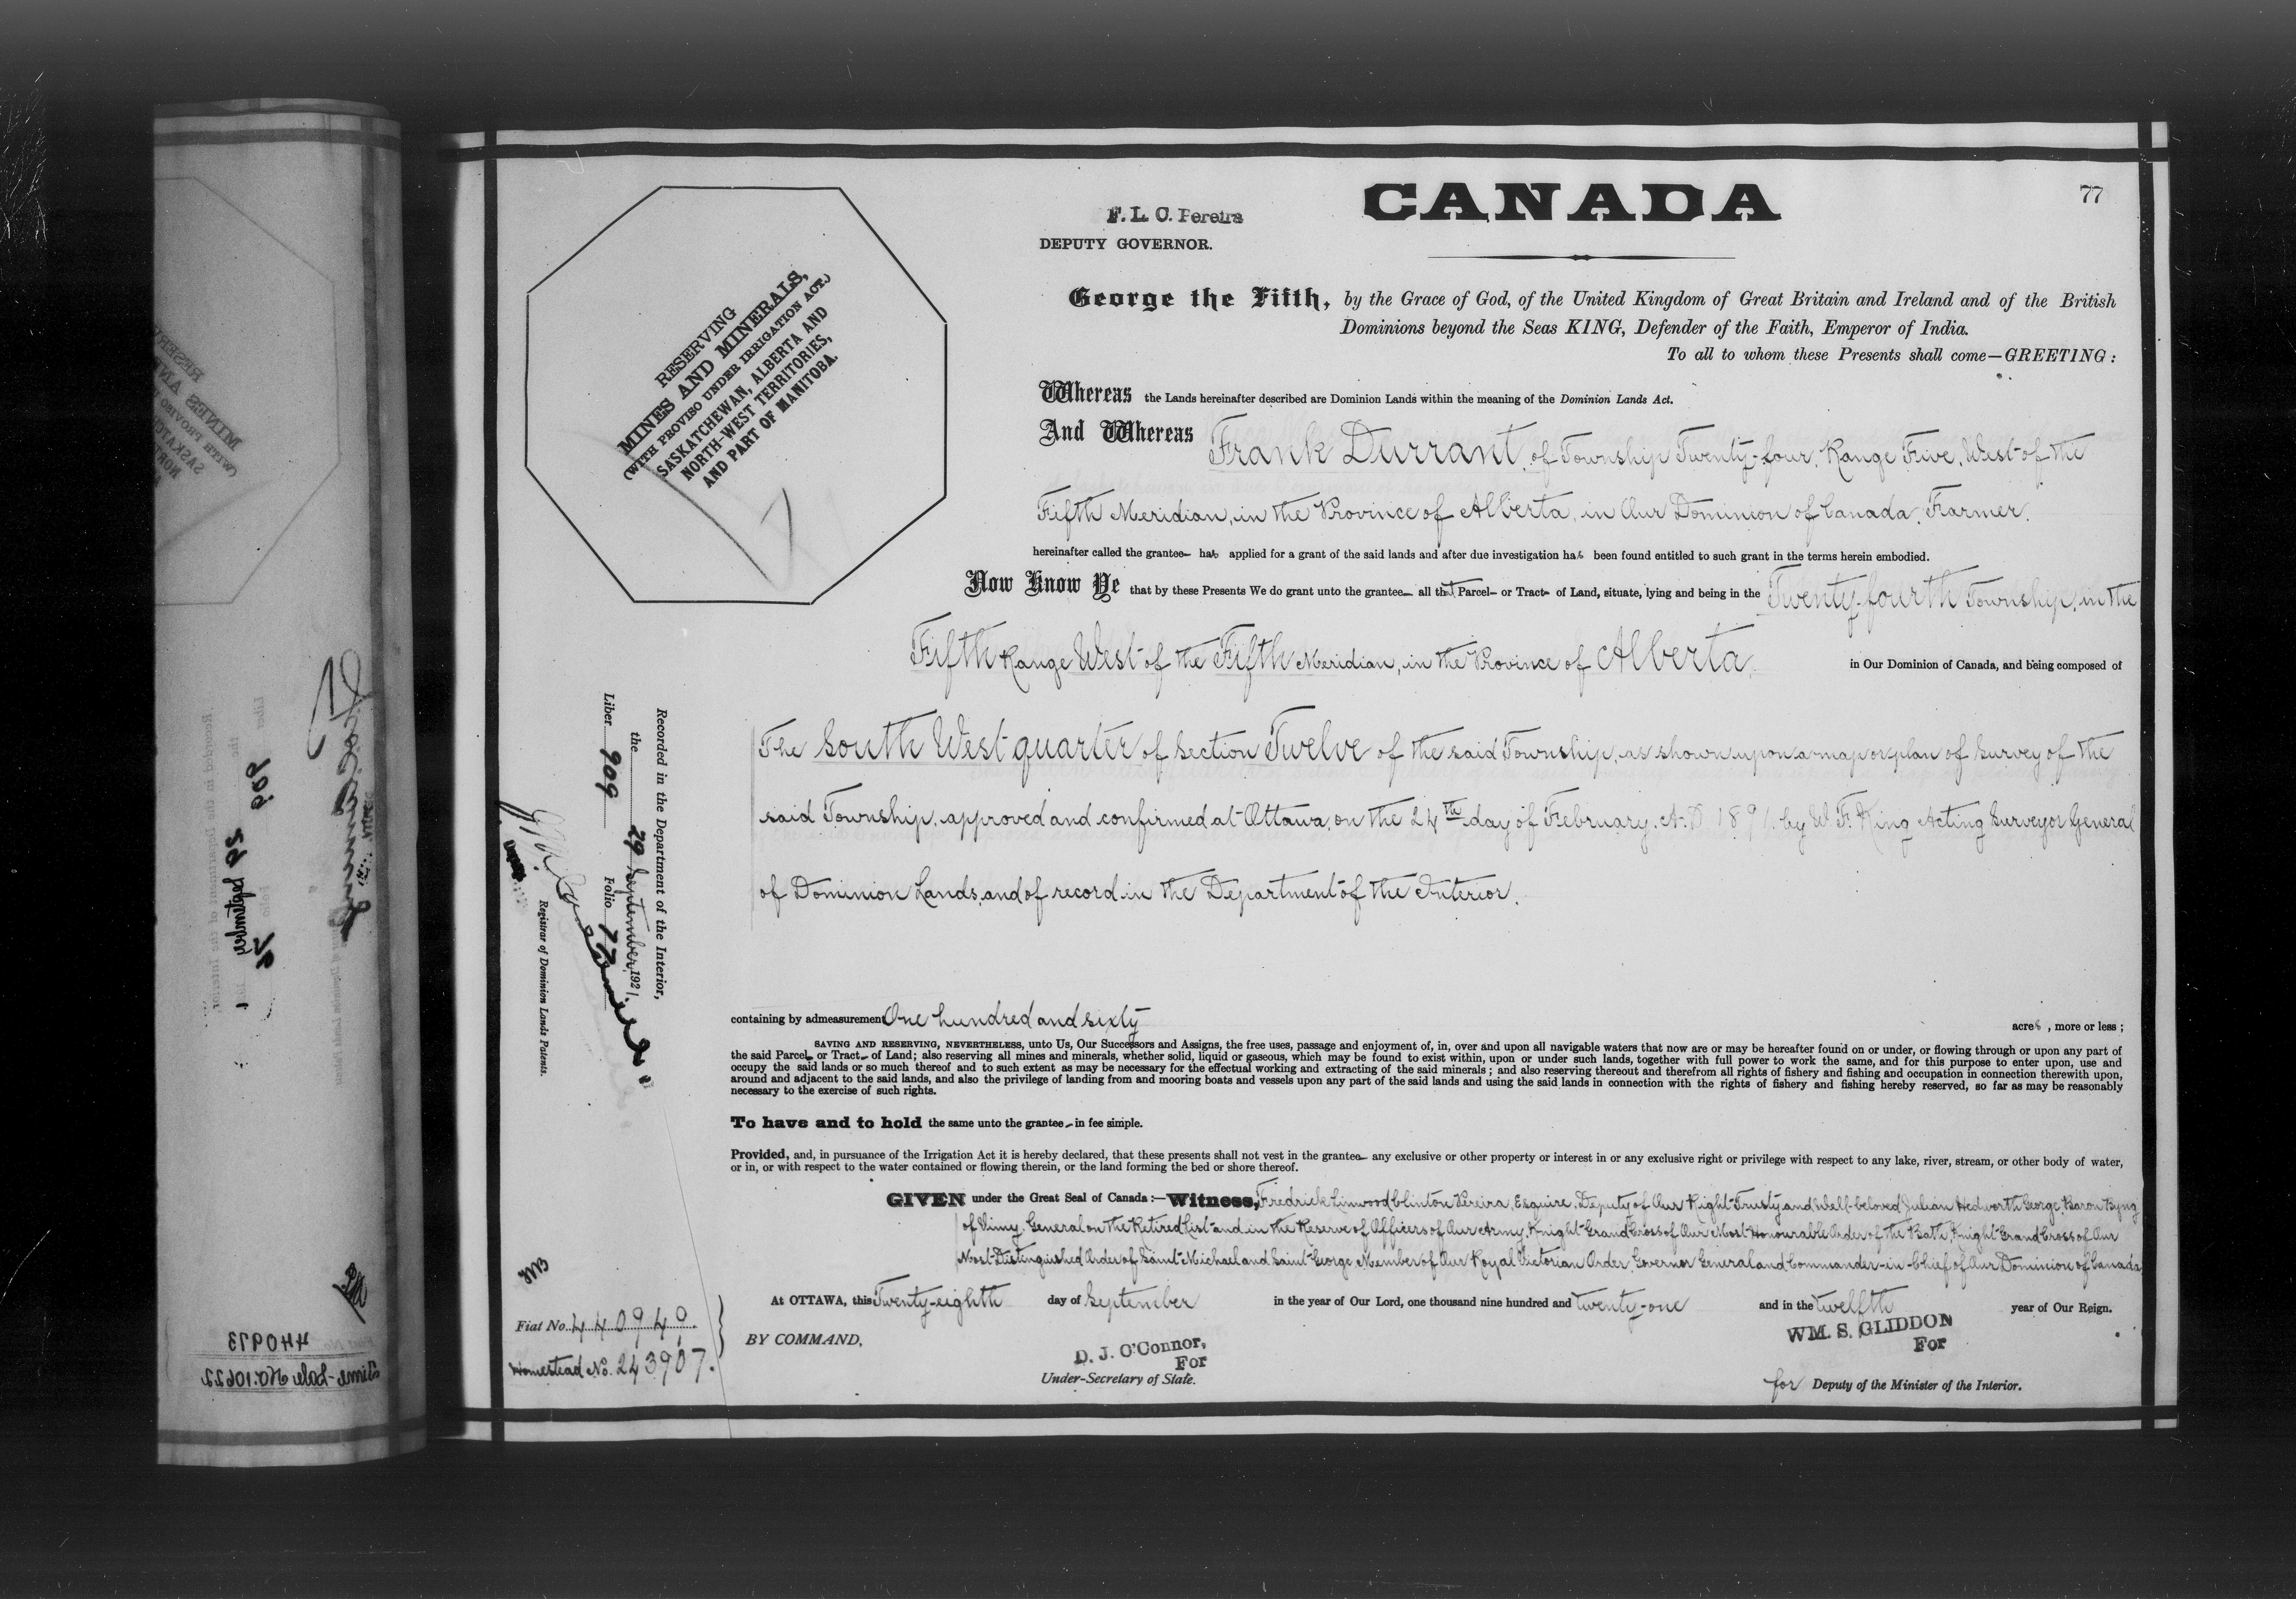 CANADA
77
F. L. C. Pereira
DEPUTY GOVERNOR.
RESERVING
MINES AND MINERALS,
(WITH PROVISO UNDER IRRIGATION ACT.)
SASKATCHEWAN, ALBERTA AND
NORTH-WEST TERRITORIES,
AND PART OF MANITOBA.
George the Fifth, by the Grace of God, of the United Kingdom of Great Britain and Ireland and of the British
Dominions beyond the Seas KING, Defender of the Faith, Emperor of India.
To all to whom these Presents shall come—GREETING:
Whereas the Lands hereinafter described are Dominion Lands within the meaning of the Dominion Lands Act.
And Whereas Frank Durrant, of Township Twenty-four, Range Five, West of the
Fifth Meridian, in the Province of Alberta, in Our Dominion of Canada, Farmer,
hereinafter called the grantee has applied for a grant of the said lands and after due investigation has been found entitled to such grant in the terms herein embodied.
Now Know Ye that by these Presents We do grant unto the grantee all that Parcel or Tract of Land, situate, lying and being in the Twenty-fourth Township, in the
Fifth Range West of the Fifth Meridian, in the Province of Alberta, in Our Dominion of Canada, and being composed of
The South West quarter of Section Twelve of the said Township, as shown upon a map or plan of survey of the
said Township, approved and confirmed at Ottawa, on the 24th day of February, A.D. 1891, by W. F. King Acting Surveyor General
of Dominion Lands, and of record in the Department of the Interior.
containing by admeasurement One hundred and sixty acres, more or less;
SAVING AND RESERVING, NEVERTHELESS, unto Us, Our Successors and Assigns, the free uses, passage and enjoyment of, in, over and upon all navigable waters that now are or may be hereafter found on or under, or flowing through or upon any part of
the said Parcel or Tract of Land; also reserving all mines and minerals, whether solid, liquid or gaseous, which may be found to exist within, upon or under such lands, together with full power to work the same, and for this purpose to enter upon, use and
occupy the said lands or so much thereof and to such extent as may be necessary for the effectual working and extracting of the said minerals; and also reserving thereout and therefrom all rights of fishery and fishing and occupation in connection therewith upon,
around and adjacent to the said lands, and also the privilege of landing from and mooring boats and vessels upon any part of the said lands and using the said lands in connection with the rights of fishery and fishing hereby reserved, so far as may be reasonably
necessary to the exercise of such rights.
To have and to hold the same unto the grantee in fee simple.
Provided, and, in pursuance of the Irrigation Act it is hereby declared, that these presents shall not vest in the grantee any exclusive or other property or interest in or any exclusive right or privilege with respect to any lake, river, stream, or other body of water,
or in, or with respect to the water contained or flowing therein, or the land forming the bed or shore thereof.
GIVEN under the Great Seal of Canada:—Witness, Fredrick Linwood Clinton Pereira, Esquire, Deputy of Our Right Trusty and Well-beloved Julian Hedworth George, Baron Byng
of Vimy, General on the Retired List and in the Reserve of Officers of Our Army, Knight Grand Cross of Our Most Honourable Order of the Bath, Knight Grand Cross of Our
Most Distinguished Order of Saint Michael and Saint George, Member of Our Royal Victorian Order, Governor General and Commander-in-Chief of Our Dominion of Canada
At OTTAWA, this Twenty-eighth day of September in the year of Our Lord, one thousand nine hundred and twenty-one and in the twelfth year of Our Reign.
BY COMMAND,
D. J. O'Connor,
For
Under-Secretary of State.
WM. S. GLIDDON
For
for Deputy of the Minister of the Interior.
Recorded in the Department of the Interior,
the 29 September 1921.
Liber 909 Folio 77
Registrar of Dominion Lands Patents.
Fiat No. 440940.
Homestead No. 243907.